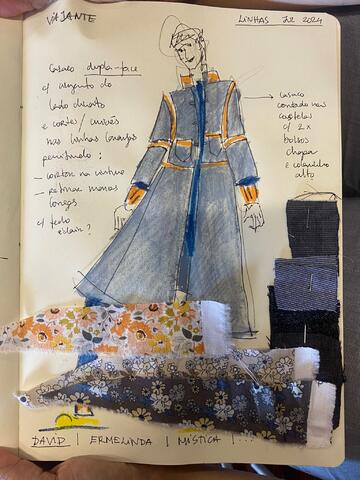 VIAJANTE
LINHAS JUL 2024
Casaco dupla-face
c/ avesso do
lado direito
e cortes/
nas linhas
permitindo:
— cortar na cintura
— retirar mangas
c/ fecho
eclair?
Casaco
cortado nas
costelas
c/ 2x
bolsos
chapa
e colarinho
alto
DAVID | ERMELINDA | MÍSTICA | ...